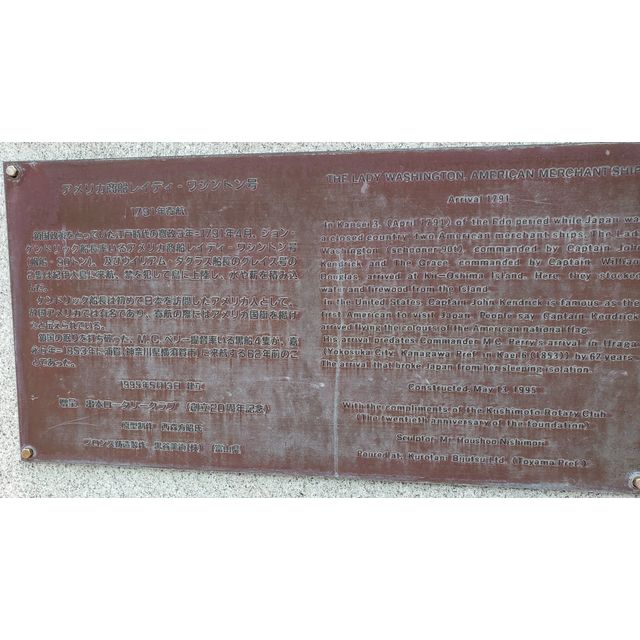 アメリカ商船レイディ・ワシントン号
1791年寄航
鎖国政策をとっていた江戸時代の寛政3年=1791年4月、ジョン・
ケンドリック船長率いるアメリカ商船レイディ・ワシントン号
(帆船・90トン)、及びウイリアム・ダグラス船長のグレイス号の
2隻は紀伊大島に来航、禁を犯して島に上陸し、水や薪を積み込
んだ。
ケンドリック船長は初めて日本を訪問したアメリカ人として、
米国アメリカでは有名であり、寄航の際にはアメリカ国旗を掲げ
たと伝えられている。
鎖国の眠りを打ち破った、M・C・ペリー提督率いる黒船4隻が、嘉
永6年=1853年に浦賀(神奈川県横須賀市)に来航する62年前のこ
とであった。
1995年5月13日 建立
贈呈 串本ロータリークラブ (創立20周年記念)
模型制作 西森方昭氏
ブロンズ鋳造製作 黒谷美術(株) 富山県
THE LADY WASHINGTON, AMERICAN MERCHANT SHIP
Arrival 1791
In Kansei 3, (April 1791) of the Edo period while Japan wa
a closed country two American merchant ships, The Lad
Washington (schooner-90t), commanded by Captain John
Kendrick and The Grace commanded by Captain William
Douglas, arrived at Kii-Oshima Island. Here, they stocked
water and firewood from the Island.
In the United States, Captain John Kendrick is famous as the
first American to visit Japan. People say Captain Kendrick
arrived flying the colours of the American national flag.
His arrival predates Commander M.C. Perry's arrival in Uraga
(Yokosuka City, Kanagawa Pref. in Kaei 6 (1853)) by 62 years.
The arrival that broke Japan from her sleeping isolation.
Constructed, May 13, 1995
With the compliments of the Kushimoto Rotary Club
(The twentieth anniversary of the foundation)
Sculptor Mr. Houshoo Nishimori
Poured at, Kurotani Bijutsu Ltd. (Toyama Pref.)